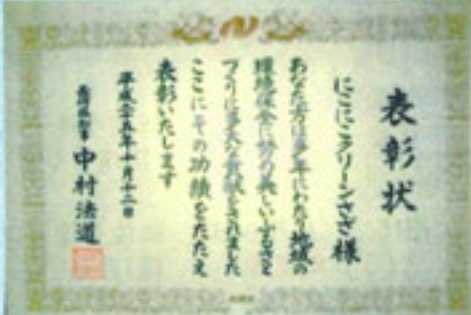 表彰状
にこにこクリーンさざ様
あなた方は多年にわたり地域の
環境保全に努め美しいふるさと
づくりに多大な貢献をされました
ここにその功績をたたえ
表彰いたします
平成二十五年十月十二日
長崎県知事 中村法道